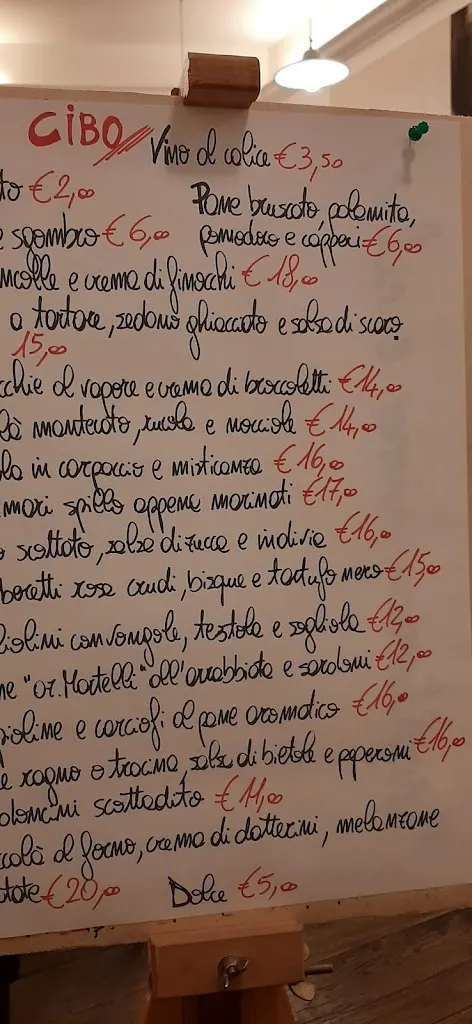 CIBO Vino al calice €3,50
to €2,00 Pane bruscato, palamita,
e sgombro €6,00 pomodoro e capperi €6,00
ncolle e crema di finocchi €18,00
a tartare, sedano ghiacciato e salsa di scaro
15,00
cchie al vapore e crema di broccoletti €14,00
là mantecato, rucola e nocciole €14,00
la in carpaccio e misticanza €16,00
mari spillo appena marinati €17,00
o scottato, salsa di zucca e indivia €16,00
beretti rosa crudi, bisque e tartufo nero €15,00
liolini con vongole, testola e sogliola €12,00
ne "az. Martelli" all'arrabbiata e sardoni €12,00
sioline e carciofi al pane aromatico €16,00
e ragno o tracina, salsa di bietole e peperoni €16,00
oloncini scottadito €11,00
ccalà al forno, crema di datterini, melanzane
tate €20,00 Dolce €5,00